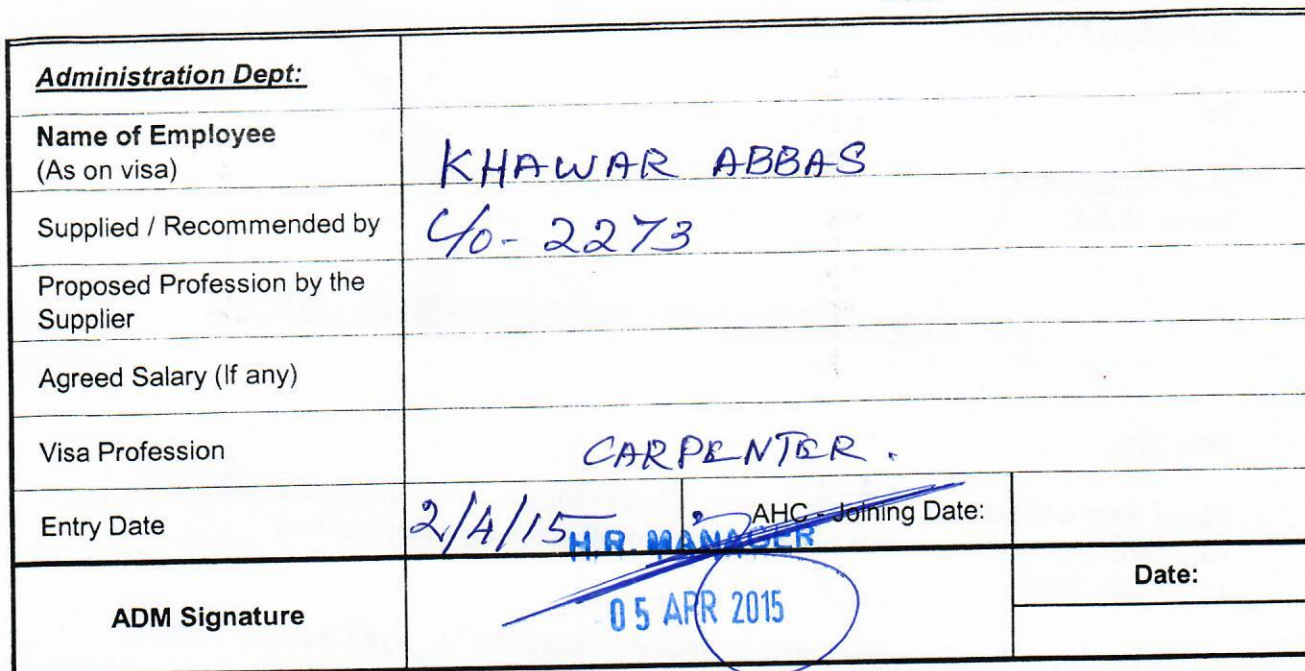 Administration Dept:
Name of Employee
(As on visa)
KHAWAR ABBAS
Supplied / Recommended by
C/o- 2273
Proposed Profession by the
Supplier
Agreed Salary (If any)
Visa Profession
CARPENTER.
Entry Date
2/4/15
AHC - Joining Date:
H.R. MANAGER
ADM Signature
05 APR 2015
Date: